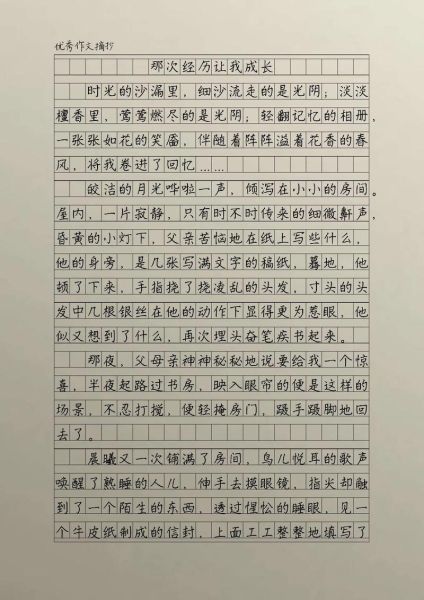 优秀作文摘抄
那次经历让我成长
时光的沙漏里，细沙流走的是光阴；淡淡
檀香里，莺莺燃尽的是光阴；轻翻记忆的相册，
一张张如花的笑靥，伴随着阵阵溢着花香的春
风，将我卷进了回忆……
皎洁的月光哗啦一声，倾泻在小小的房间。
屋内，一片寂静，只有时不时传来的细微鼾声，
昏黄的小灯下，父亲苦恼地在纸上写些什么，
他的身旁，是几张写满文字的稿纸，蓦地，他
顿了下来，手指挠了挠凌乱的头发，寸头的头
发中几根银丝在他的动作下显得更为惹眼，他
似又想到了什么，再次埋头奋笔疾书起来。
那夜，父母亲神神秘秘地说要给我一个惊
喜，半夜起路过书房，映入眼帘的便是这样的
场景，不忍打搅，便轻掩房门，蹑手蹑脚地回
去了。
晨曦又一次铺满了房间，鸟儿悦耳的歌声
唤醒了熟睡的人儿，伸手去摸眼镜，指尖却触
到了一个陌生的东西，透过惺忪的睡眼，见一
个牛皮纸制成的信封，上面工工整整地填写了